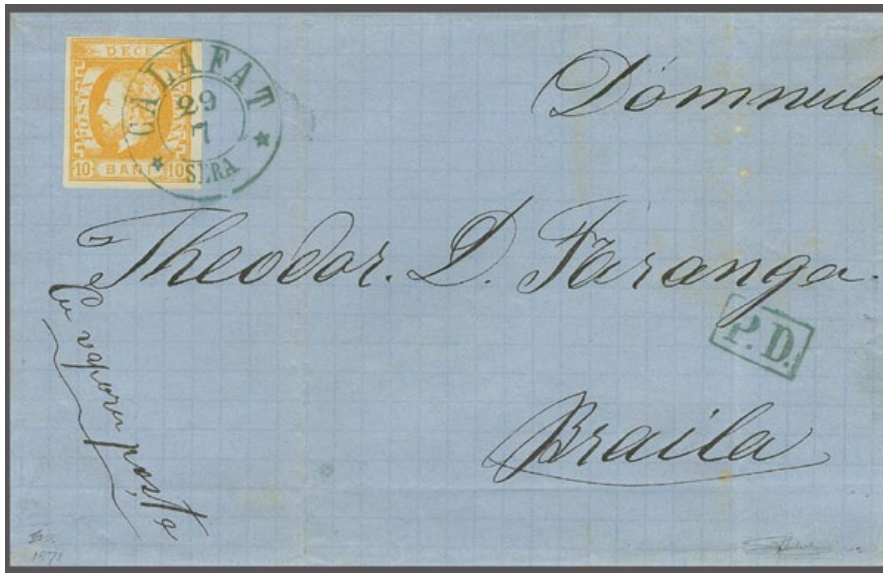 DECE
POSTA
10 BANI 10
CALAFAT
29
7
SERA
Dómnula
Theodor. D. Faranga.
P.D.
Braila
Cu vaporu posta
1871